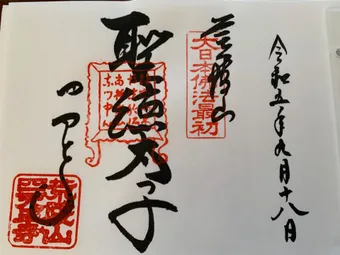 令和五年九月十八日
荒陵山
大日本佛法最初
聖徳太子
四天王寺